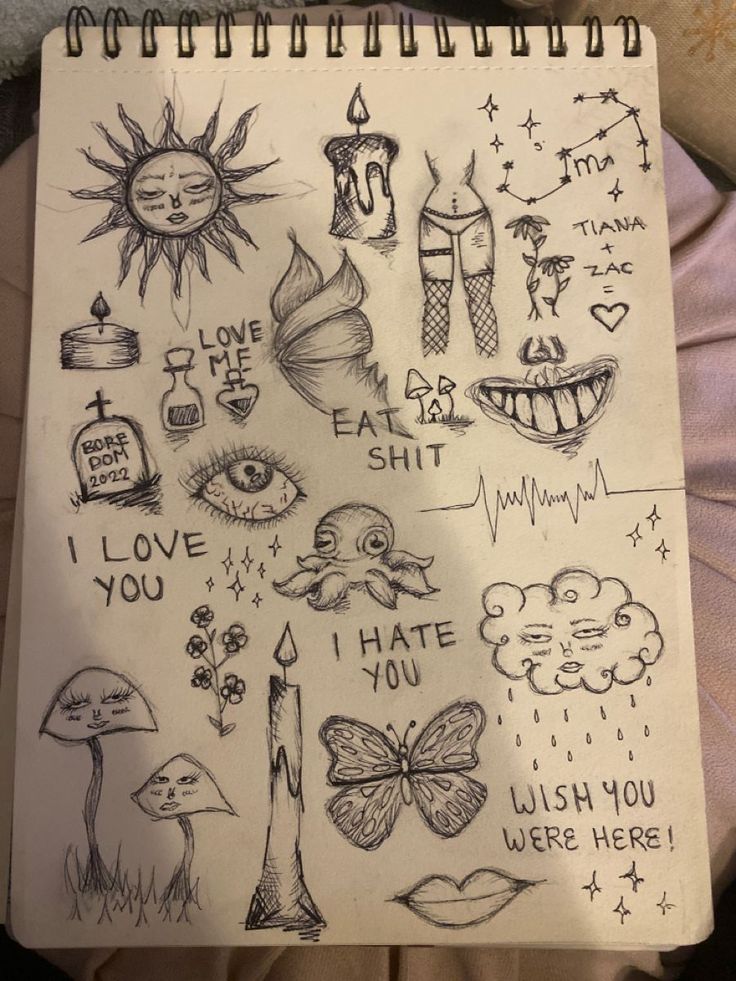 TIANA
+
ZAC
=
LOVE
ME
EAT
SHIT
BORE
DOM
2022
I LOVE
YOU
I HATE
YOU
WISH YOU
WERE HERE!